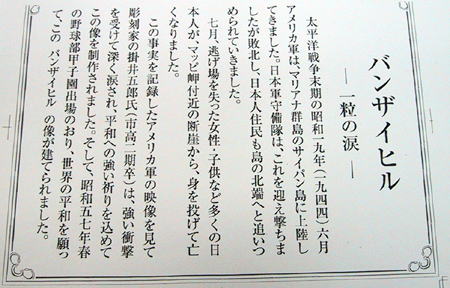 バンザイヒル
― 一粒の涙 ―
太平洋戦争末期の昭和一九年(一九四四)六月
アメリカ軍は、マリアナ群島のサイパン島に上陸し
てきました。日本軍守備隊は、これを迎え撃ちま
したが敗北し、日本人住民も島の北端へと追いつ
められていきました。
七月、逃げ場を失った女性・子供など多くの日
本人が、マッピ岬付近の断崖から、身を投げて亡
くなりました。
この事実を記録したアメリカ軍の映像を見て
彫刻家の掛井五郎氏(市高二期卒)は、強い衝撃
を受けて深く涙され、平和への強い祈りを込めて
この像を制作されました。そして、昭和五七年春
の野球部甲子園出場のおり、世界の平和を願っ
て、この バンザイヒル の像が建てられました。